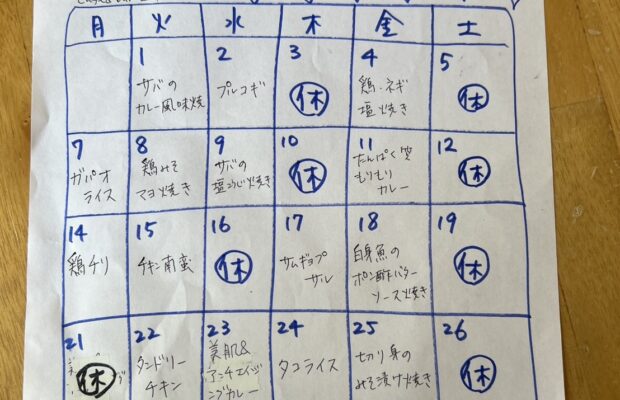 月 火 水 木 金 土
1 2 3 4 5
サバの プルコギ 休 鶏・ネギ 休
カレー風味焼 塩焼き
7 8 9 10 11 12
ガパオ 鶏みそ サバの 休 たんぱく質 休
ライス マヨ焼き 塩こうじ焼き もりもり
カレー
14 15 16 17 18 19
鶏チリ チキン南蛮 休 サムギョプ 白身魚の 休
サル ポン酢バター
ソース焼き
21 22 23 24 25 26
休 タンドリー 美肌& タコライス 切り身の 休
チキン アンチエイジ みそ漬け焼き
ングカレー